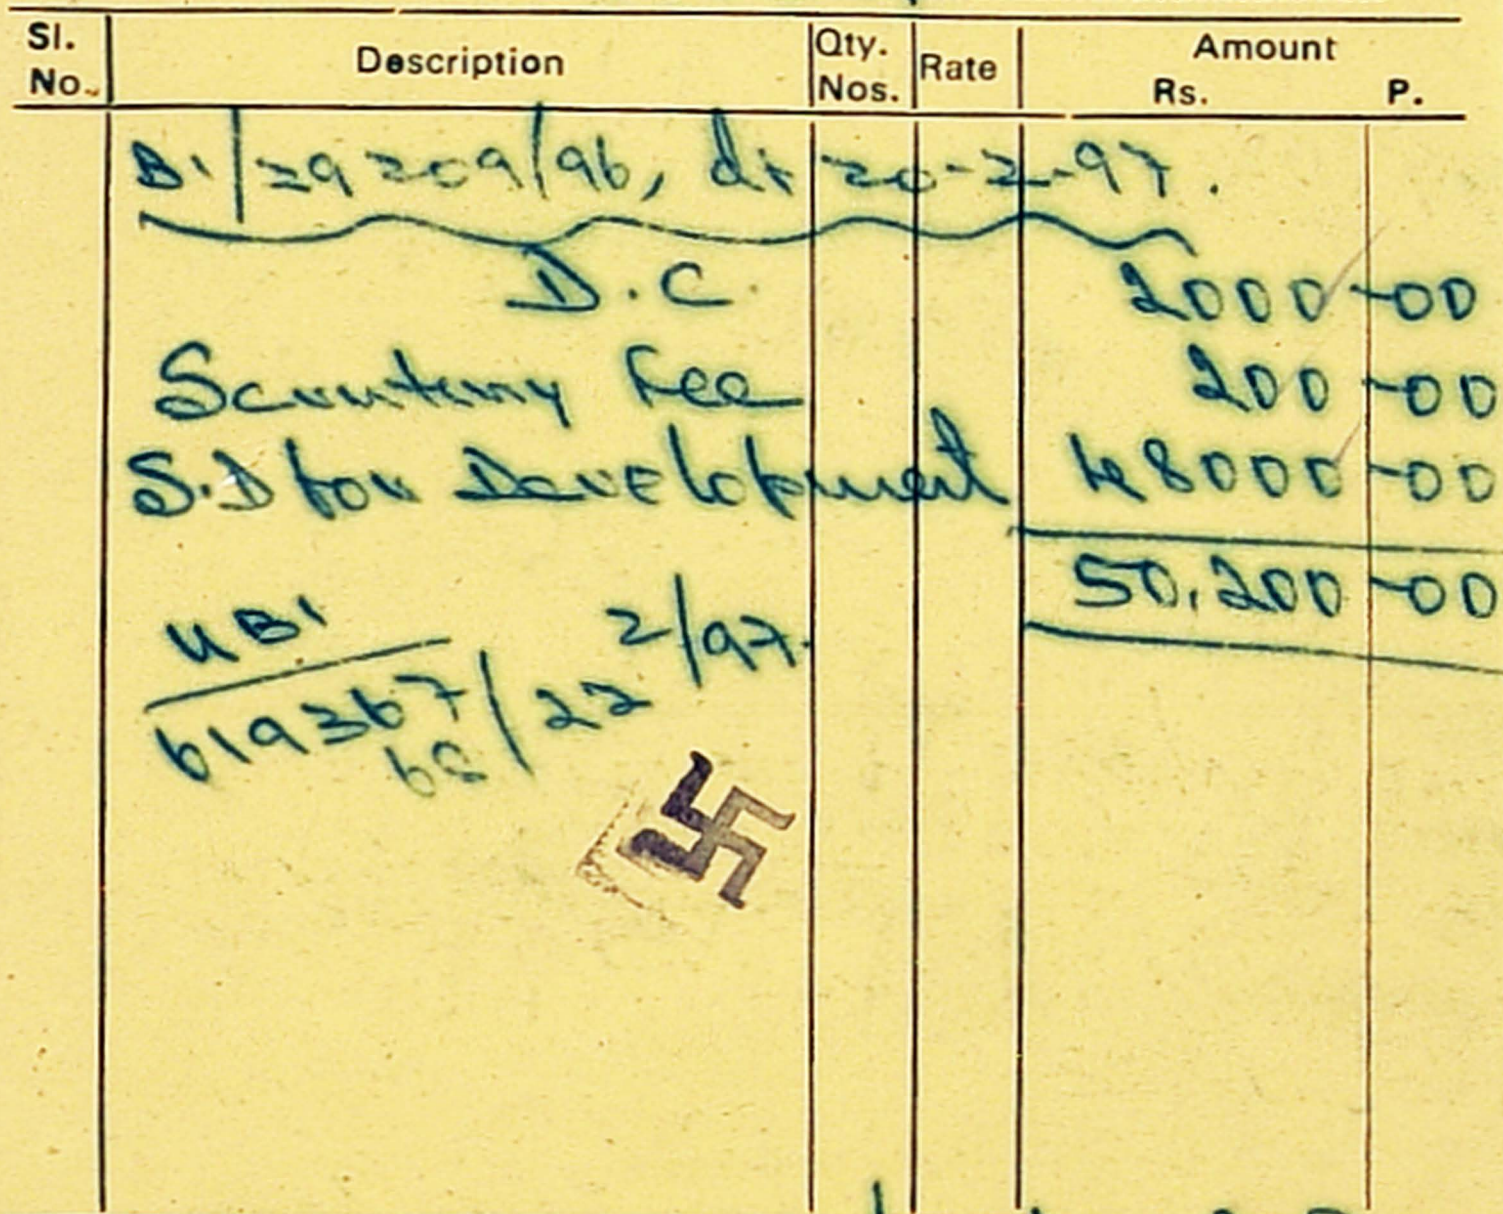 Sl. No. Description Qty. Nos. Rate Amount Rs. P.
B1/29209/96, dt 20-2-97.
D.C. 2000-00
Scrutiny Fee 200-00
S.D for Development 48000-00
50,200-00
UBI
619367/22 2/97.
68